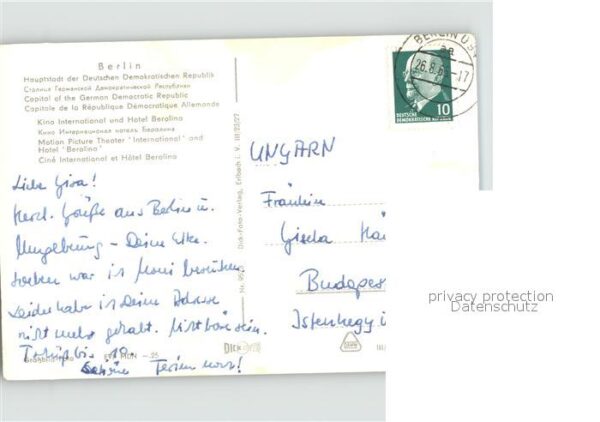 Berlin
Hauptstadt der Deutschen Demokratischen Republik
Столица Германской Демократической Республики
Capital of the German Democratic Republic
Capitale de la République Démocratique Allemande
Kino International und Hotel Berolina
Кино Интернационал отель Беролина
Motion Picture Theater "International" and
Hotel "Berolina"
Ciné International et Hôtel Berolina
Liebe Gisa!
Herzl. Grüße aus Berlin u.
Umgebung – Deine Elke.
Soeben war ich Moni besuchen.
Leider habe ich Deine Adresse
nicht mehr gehabt.
Schöne Ferien noch!
EVP MDN –.25
Dick-Foto-Verlag, Erlbach i. V. III/23/27
DICK
BERLIN
26.8.
-17
10
DEUTSCHE
DEMOKRATISCHE
UNGARN
Fräulein
Gisela
Budapes
Istenhegyi
privacy protection
Datenschutz